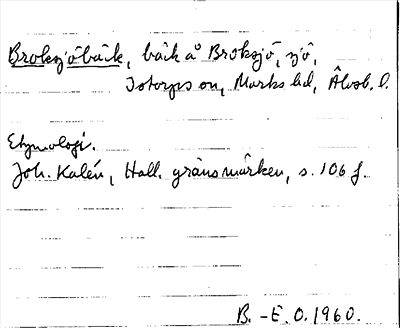 Broksjöbäck, bäck å Broksjö, sjö,
Istorps sn, Marks hd, Älvsb. l.
Etymologi.
Joh. Kalén, Hall. gränsmärken, s. 106 f.
B.-E.O. 1960.